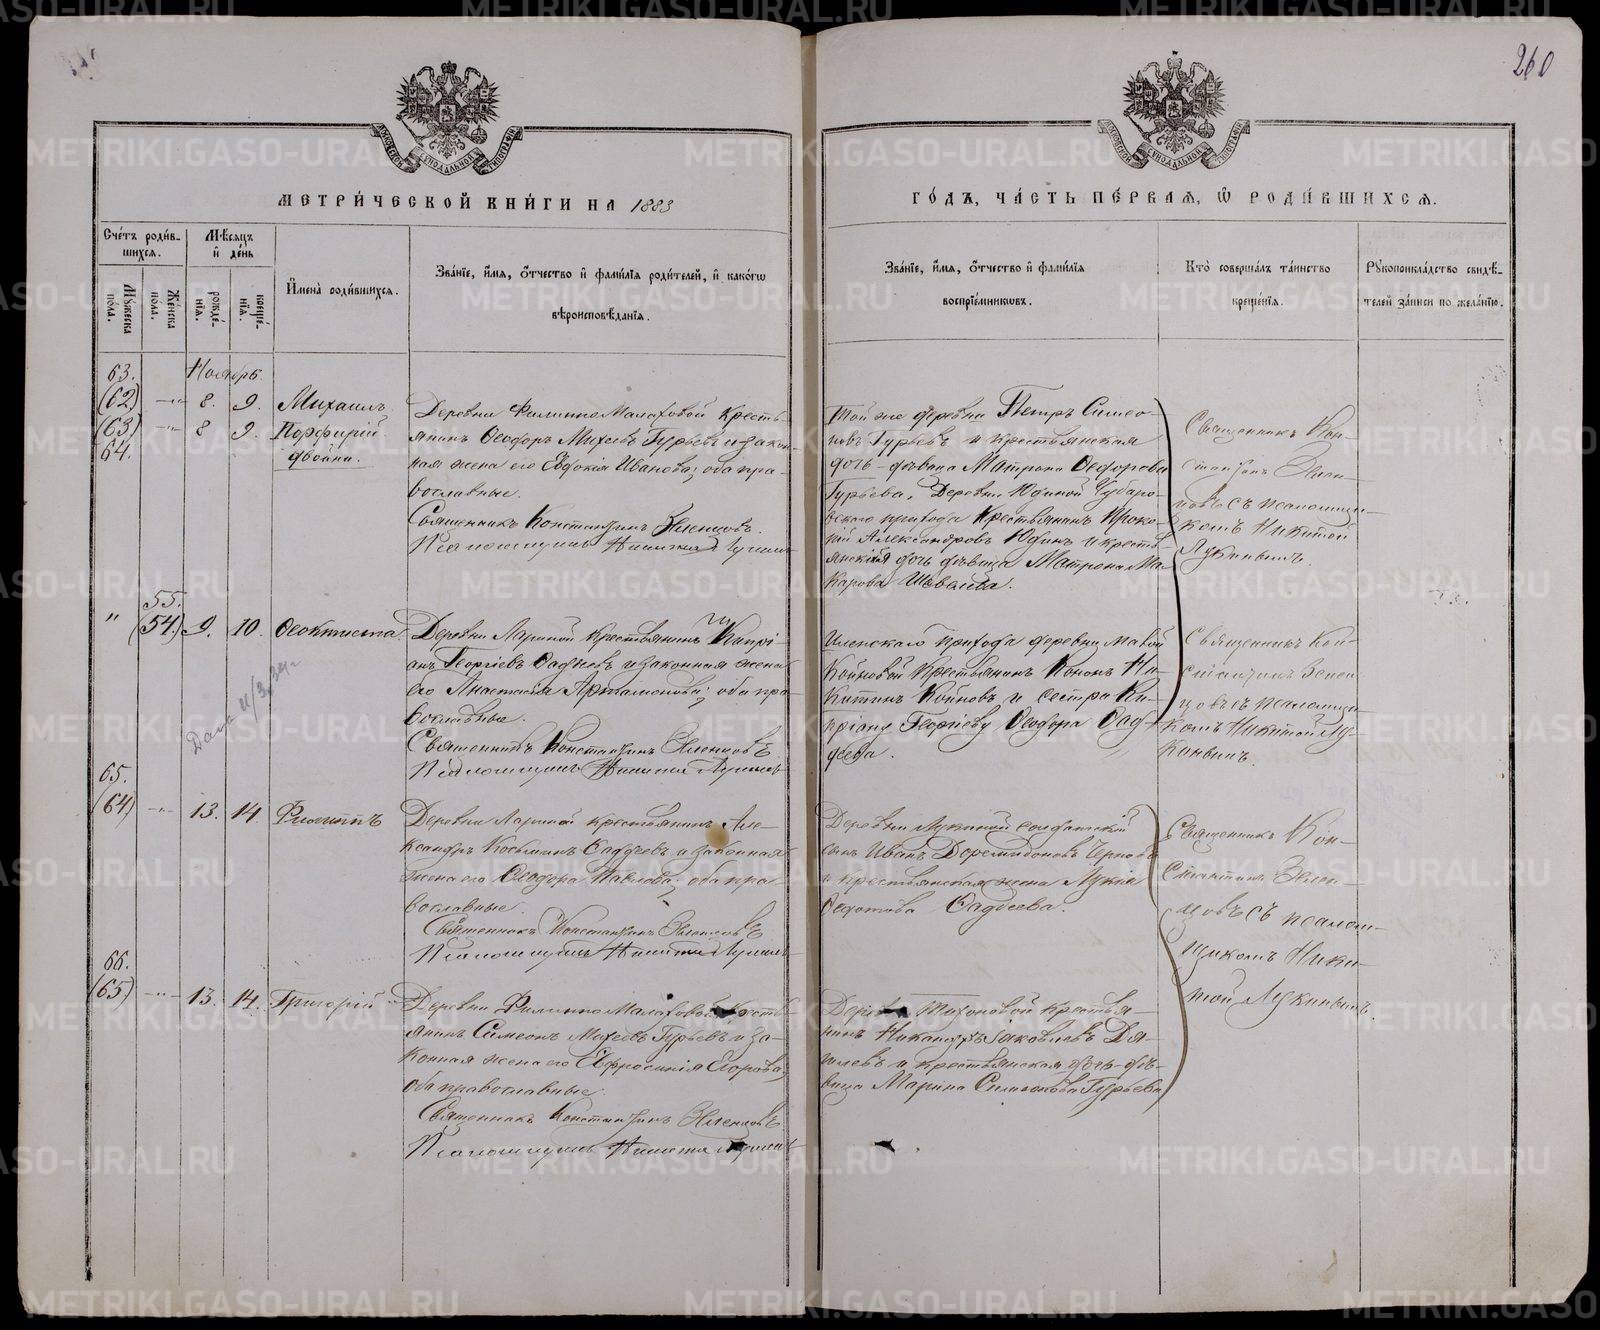 260
МОСКОВСКОЙ СѴНОДАЛЬНОЙ ТИПОГРАФІИ
МОСКОВСКОЙ СѴНОДАЛЬНОЙ ТИПОГРАФІИ
МЕТРИ́ЧЕСКОЙ КНИ́ГИ НА 1883
ГО́ДЪ, ЧА́СТЬ ПЕ́РВАЯ, Ѿ РОДИ́ВШИХСЯ.
Сче́тъ роди́в-
шихся.
Му́жеска по́ла.
Же́нска по́ла.
Мѣ́сяцъ
и҆ де́нь
рожде́-
нїя.
креще́-
нїя.
И҆мена̀ роди́вшихся.
Зва́нїе, и҆́мя, ѻ҆́тчество и҆ фами́лїя роди́телей, и҆ како́гѡ
вѣроисповѣ́данїя.
Зва́нїе, и҆́мя, ѻ҆́тчество и҆ фами́лїя
воспрїе́мникѡвъ.
Кто̀ соверша́лъ та́инство
креще́нїя.
Рꙋкоприкла́дство свидѣ́-
телей за́писи по жела́нїю.
63. Ноябрь.
(62) —"— 8. 9. Михаилъ
(63) —"— 8 9. Порфирій
64. двойни.
Деревни Филиппомалаховой кресть-
янинъ Ѳеодоръ Михеевъ Гурьевъ и закон
ная жена его Евдокія Иванова; оба пра-
вославные.
Священникъ Константинъ Зеленцовъ.
Псаломщикъ Никита Лукинъ
Той же деревни Петръ Симео-
новъ Гурьевъ и крестьянская
дочь-дѣвица Матрона Ѳеодорова
Гурьева. Деревни Юдиной Чубаро-
вскаго прихода крестьянинъ Проко-
пій Александровъ Юдинъ и кресть-
янская дочь дѣвица Матрона Ма
карова
Священникъ Кон-
стантинъ Зелен-
цовъ съ псаломщи-
комъ Никитой
Лукинымъ.
55.
" (54) 9. 10. Ѳеоктиста
Деревни Лариной крестьянинъ Кипрі-
анъ Георгіевъ Фадѣевъ и законная жена
его Анастасія Артамонова; оба пра-
вославные.
Священникъ Константинъ Зеленцовъ
Псаломщикъ Никита Лукинъ
прихода деревни
Койновой крестьянинъ Кононъ Ни-
китинъ Койновъ и сестра Ки-
пріану Георгіеву Ѳеодора Фад-
деева.
Священникъ Кон-
стантинъ Зелен-
цовъ съ псаломщи-
комъ Никитой Лу-
кинымъ.
65.
(64) —"— 13. 14. Филиппъ
Деревни Лариной крестьянинъ Але-
ксандръ Косьминъ Фаддеевъ и законная
жена его Ѳеодора Павлова; оба пра-
вославные.
Священникъ Константинъ Зеленцовъ
Псаломщикъ Никита Лукинъ
Деревни Лукиной солдатскій
сынъ Иванъ Доремидоновъ Черновъ
и крестьянская жена Лукія
Ѳедотова Фаддеева.
Священникъ Кон-
стантинъ Зелен-
цовъ съ псалом-
щикомъ Ники-
той Лукинымъ.
66.
(65) —"— 13. 14. Григорій
Деревни Филиппомалаховой кресть-
янинъ Симеонъ Михеевъ Гурьевъ и за-
конная жена его Ефросинія Егорова;
оба православные.
Священникъ Константинъ Зеленцовъ
Псаломщикъ Никита Лукинъ
Деревни Тихоновой крестья-
нинъ Никандръ Іаковлевъ Дя-
гилевъ и крестьянская дочь-дѣ-
вица Марина Симеонова Гурьева
METRIKI.GASO-URAL.RU